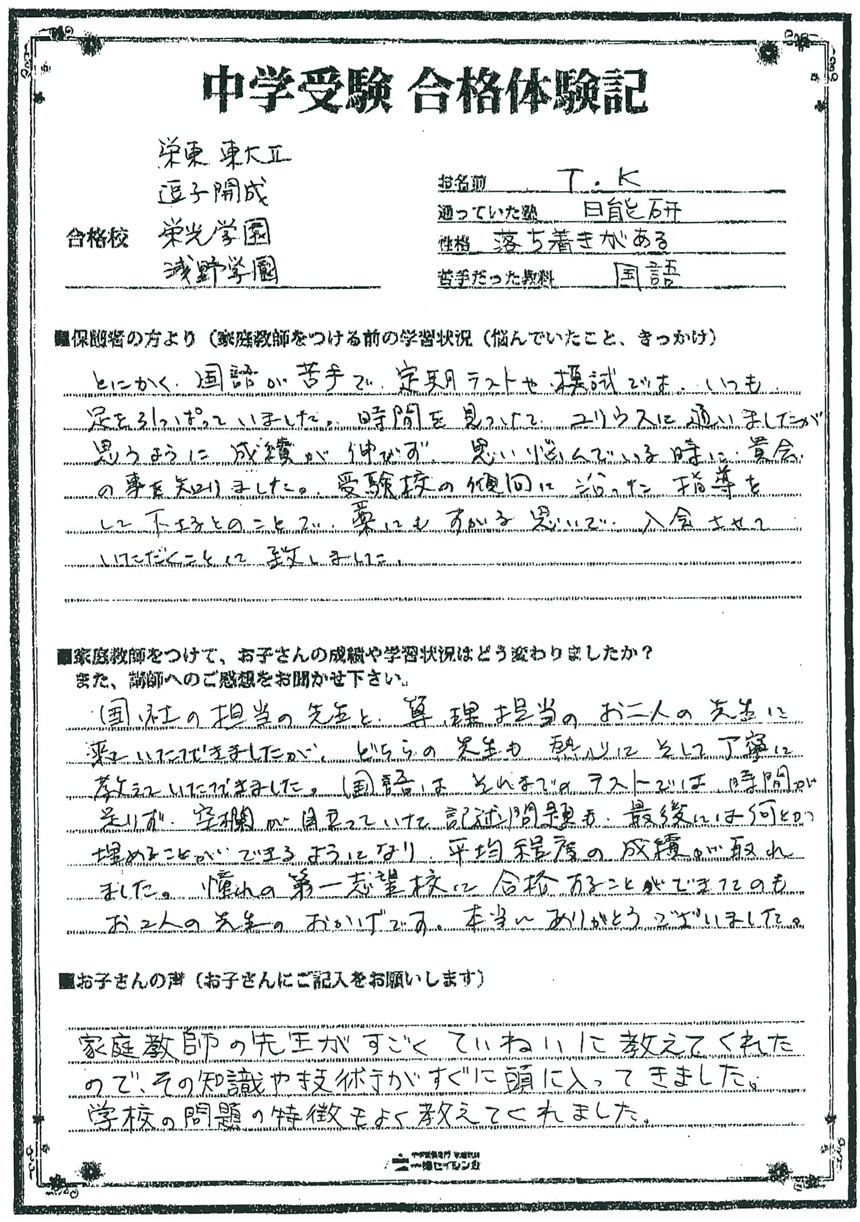 中学受験 合格体験記
合格校
栄東 東大Ⅱ
逗子開成
栄光学園
浅野学園
お名前 T.K
通っていた塾 日能研
性格 落ち着きがある
苦手だった教科 国語
■保護者の方より（家庭教師をつける前の学習状況（悩んでいたこと、きっかけ）
とにかく、国語が苦手で、定期テストや模試では、いつも
足を引っぱっていました。時間を見つけて、ユリウスに通いましたが
思うように成績が伸びず、思い悩んでいる時に、貴会
の事を知りました。受験校の傾向に沿った指導を
して下さるとのことで、藁にもすがる思いで、入会させて
いただくことに致しました。
■家庭教師をつけて、お子さんの成績や学習状況はどう変わりましたか？
また、講師へのご感想をお聞かせ下さい。
国、社の担当の先生と、算、理担当のお二人の先生に
来ていただきましたが、どちらの先生も熱心にそして丁寧に
教えていただきました。国語はそれまでのテストでは時間が
足りず、空欄が目立っていた記述問題も、最後には何とか
埋めることができるようになり、平均程度の成績が取れ
ました。憧れの第一志望校に合格することができたのも
お2人の先生のおかげです。本当にありがとうございました。
■お子さんの声（お子さんにご記入をお願いします）
家庭教師の先生がすごくていねいに教えてくれた
ので、その知識や技術がすぐに頭に入ってきました。
学校の問題の特徴もよく教えてくれました。